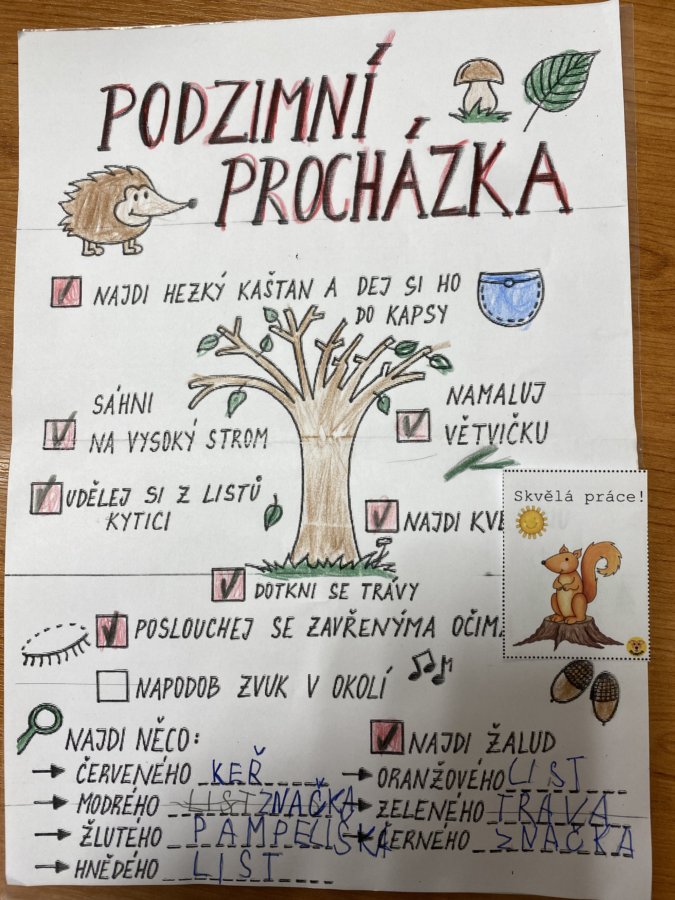 PODZIMNÍ
PROCHÁZKA
NAJDI HEZKÝ KAŠTAN A DEJ SI HO
DO KAPSY
SÁHNI
NA VYSOKÝ STROM
NAMALUJ
VĚTVIČKU
UDĚLEJ SI Z LISTŮ
KYTICI
NAJDI
Skvělá práce!
DOTKNI SE TRÁVY
POSLOUCHEJ SE ZAVŘENÝMA
NAPODOB ZVUK V OKOLÍ
NAJDI NĚCO:
ČERVENÉHO KEŘ
MODRÉHO LIST ZNAČKA
ŽLUTEHO PAMPELIŠKA
HNĚDÉHO LIST
NAJDI ŽALUD
ORANŽOVÉHO LIST
ZELENÉHO TRÁVA
ČERNÉHO ZNAČKA